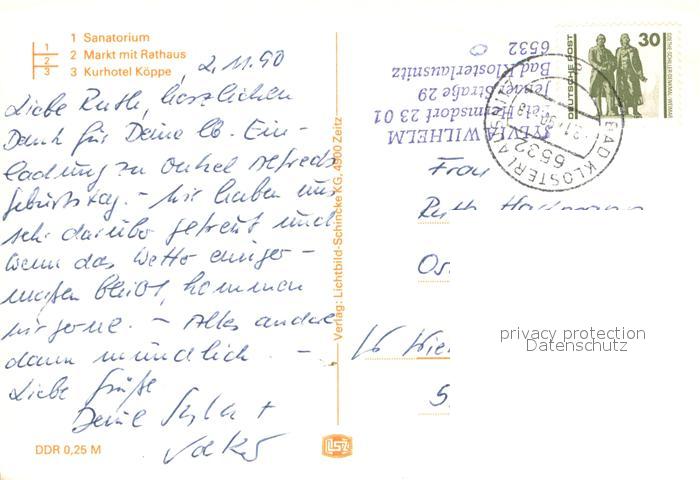 1 Sanatorium
1 2 Markt mit Rathaus
2
3 3 Kurhotel Köppe
2.11.90
Liebe Ruth, herzlichen
Dank für Deine lb. Ein-
ladung zu Onkel Alfreds
Geburtstag. - Wir haben uns
sehr darüber gefreut und
wenn das Wetter einiger-
maßen bleibt, kommen
wir gerne. - Alles andere
dann mündlich. -
Liebe Grüße
Deine Sylvia +
DDR 0,25 M
Verlag: Lichtbild-Schincke KG, 4900 Zeitz
SYLVIA WILHELM
Tel. Hermsdorf 23 01
Jenaer Straße 29
Bad Klosterlausnitz
6532
DEUTSCHE POST
30
GOETHE-SCHILLER-DENKMAL, WEIMAR
BAD KLOSTERLAUSNITZ
6532
Frau
Ruth
privacy protection
Datenschutz